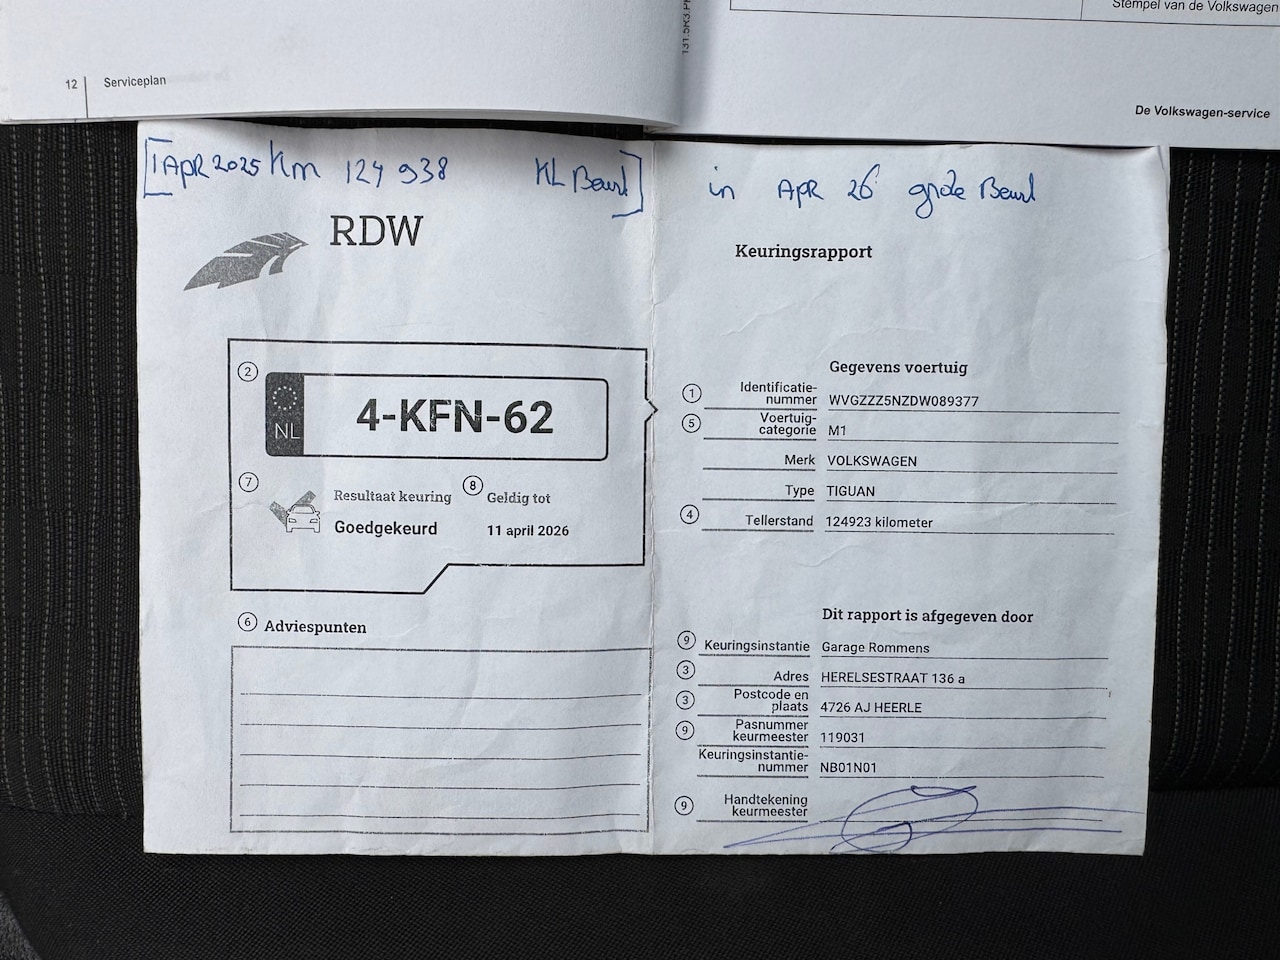 12 Serviceplan
Stempel van de Volkswagen
De Volkswagen-service
[1 APR 2025 Km 124 938 KL Beurt]
in APR 26 grote Beurt
RDW
2
NL 4-KFN-62
7 Resultaat keuring
Goedgekeurd
8 Geldig tot
11 april 2026
6 Adviespunten
Keuringsrapport
Gegevens voertuig
1 Identificatie-
nummer WVGZZZ5NZDW089377
5 Voertuig-
categorie M1
Merk VOLKSWAGEN
Type TIGUAN
4 Tellerstand 124923 kilometer
Dit rapport is afgegeven door
9 Keuringsinstantie Garage Rommens
3 Adres HERELSESTRAAT 136 a
3 Postcode en
plaats 4726 AJ HEERLE
9 Pasnummer
keurmeester 119031
Keuringsinstantie-
nummer NB01N01
9 Handtekening
keurmeester